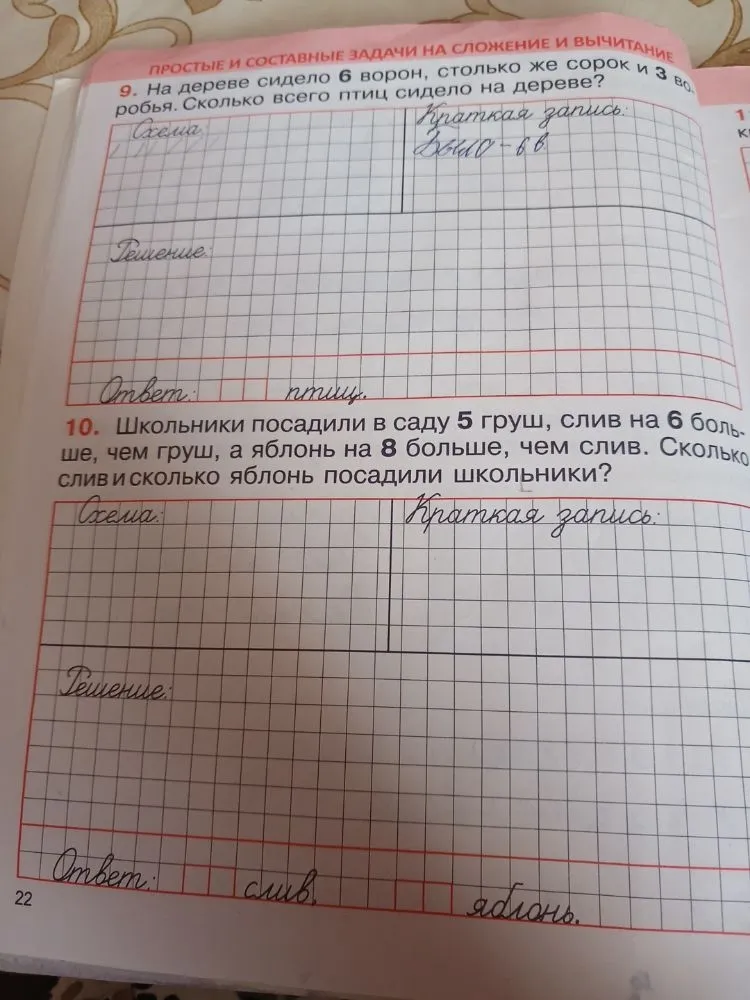 ПРОСТЫЕ И СОСТАВНЫЕ ЗАДАЧИ НА СЛОЖЕНИЕ И ВЫЧИТАНИЕ
9. На дереве сидело 6 ворон, столько же сорок и 3 во-
робья. Сколько всего птиц сидело на дереве?
Схема:
Краткая запись:
Было - 6 в
Решение:
Ответ: птиц.
10. Школьники посадили в саду 5 груш, слив на 6 боль-
ше, чем груш, а яблонь на 8 больше, чем слив. Сколько
слив и сколько яблонь посадили школьники?
Схема:
Краткая запись:
Решение:
Ответ: слив, яблонь.
22
1